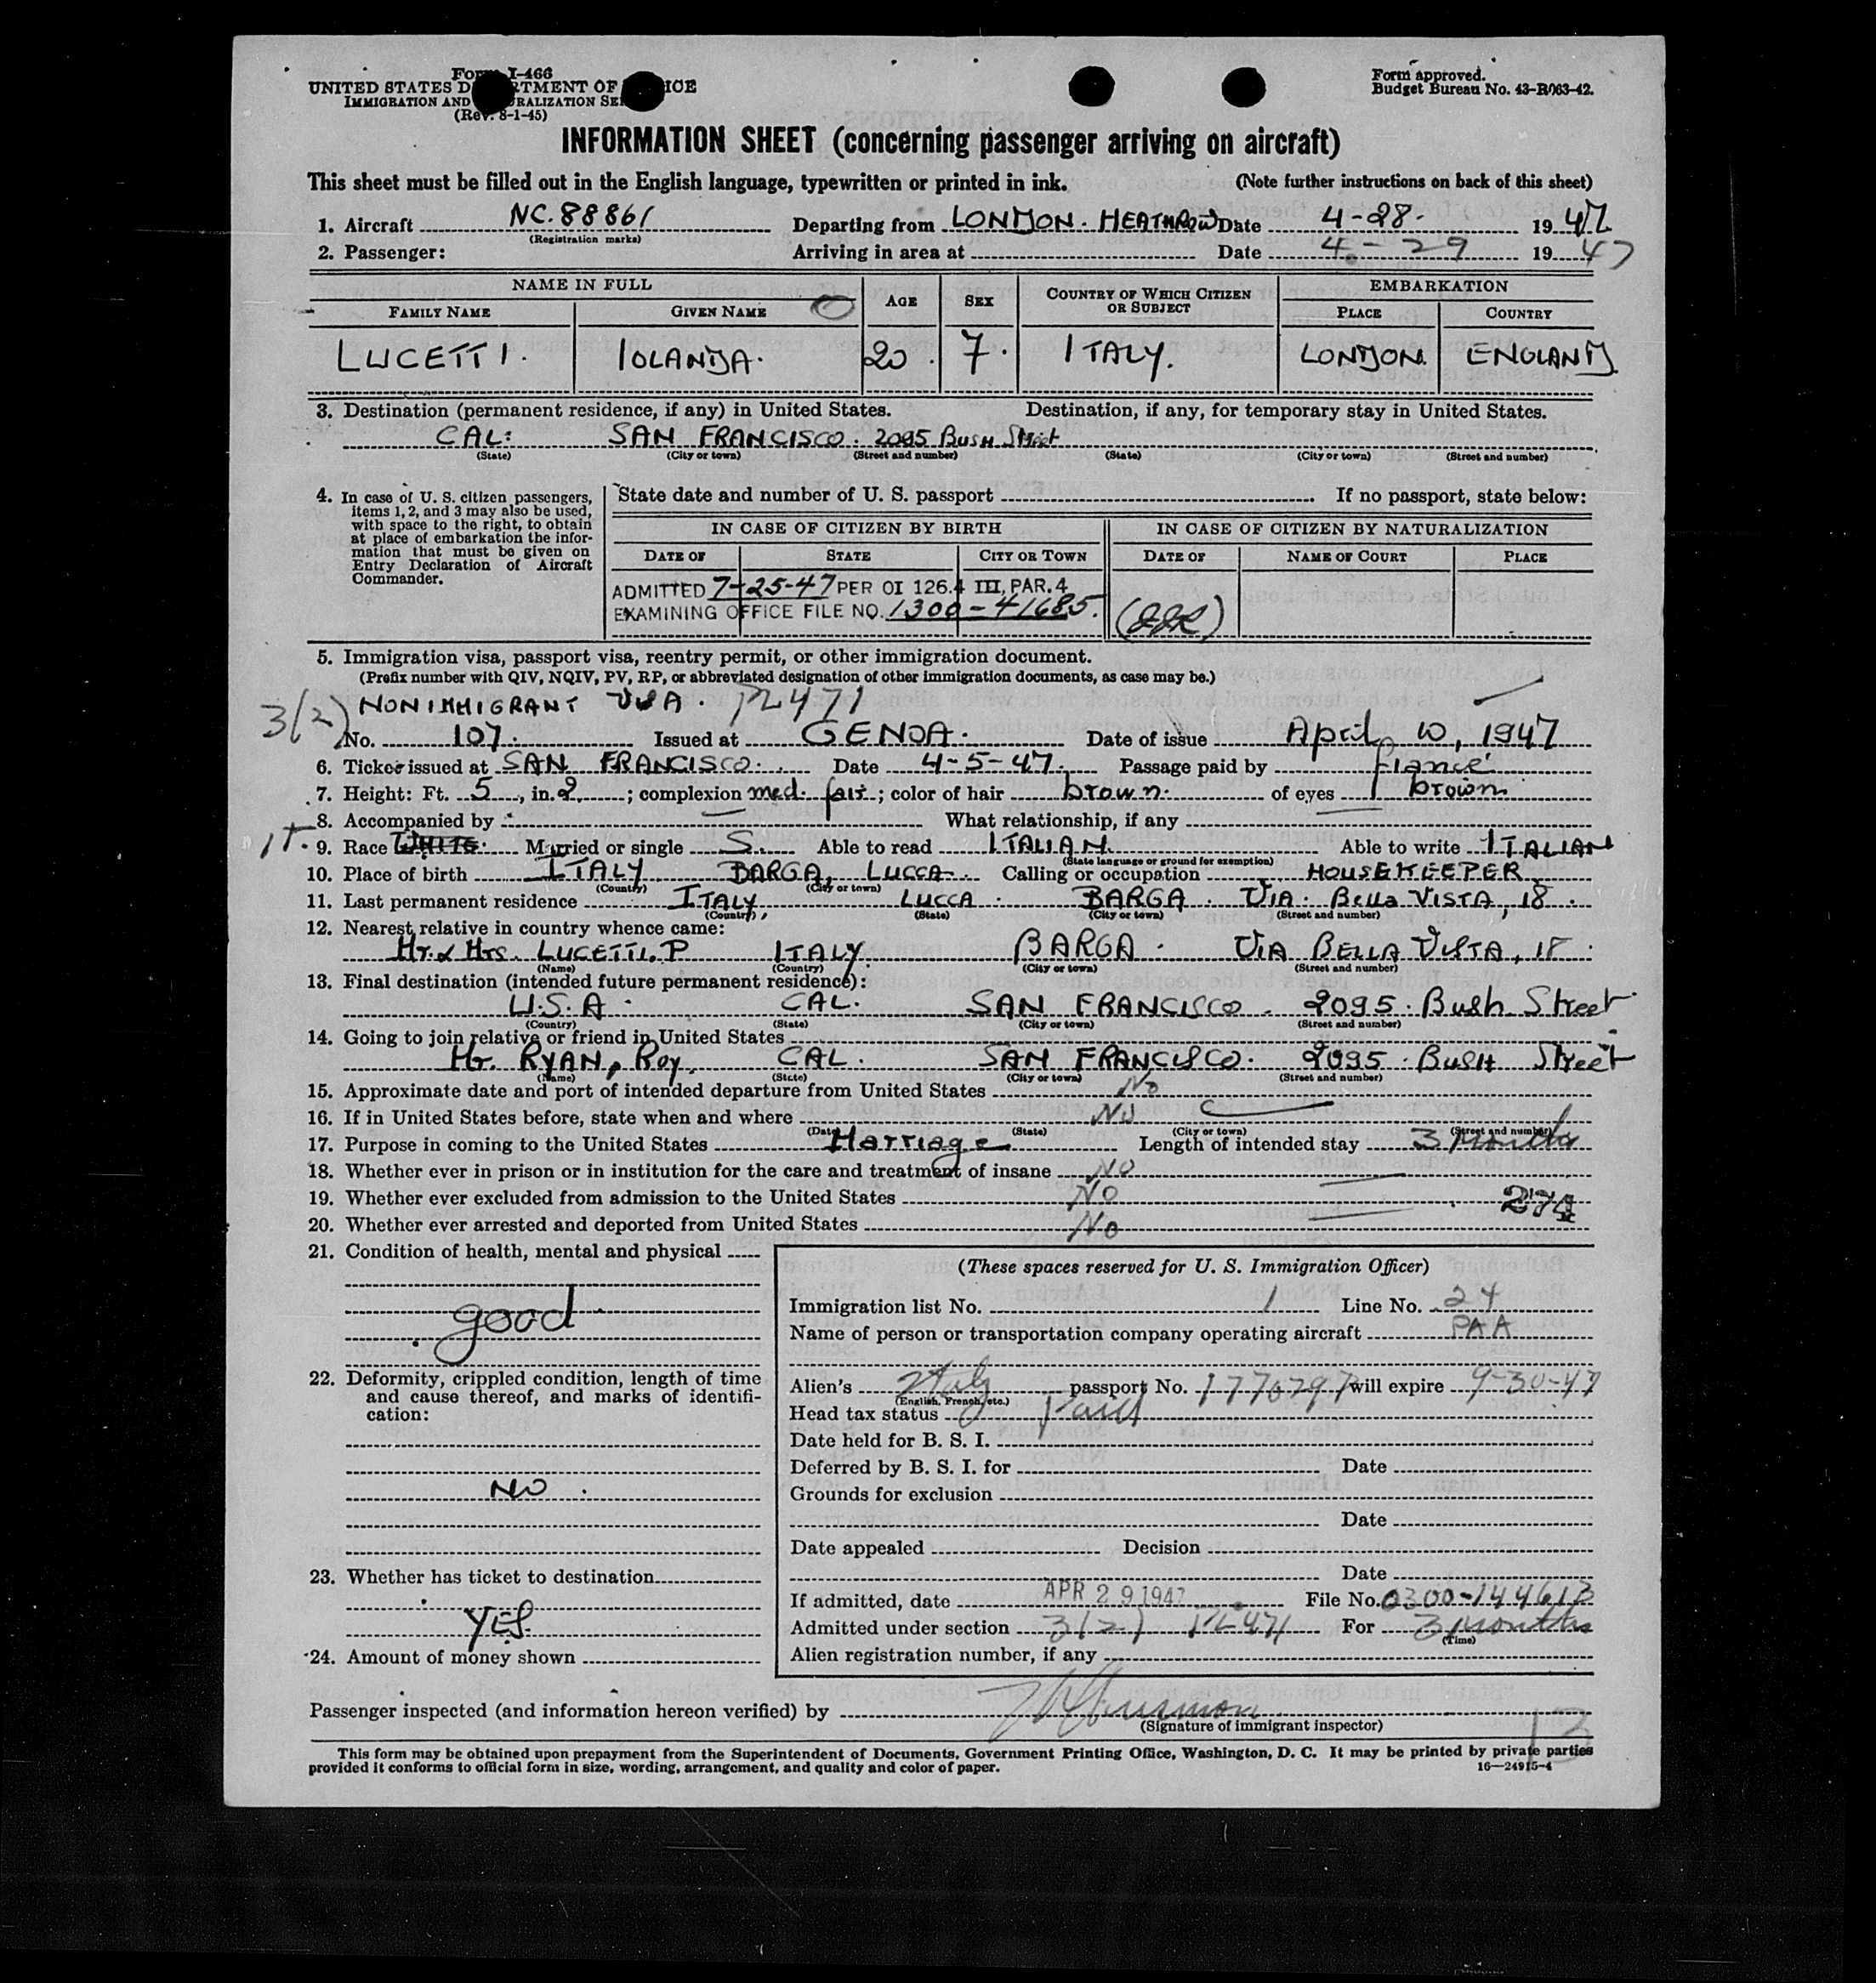 Form I-466
UNITED STATES DEPARTMENT OF JUSTICE
IMMIGRATION AND NATURALIZATION SERVICE
(Rev. 8-1-45)
Form approved.
Budget Bureau No. 43-R063-42.
INFORMATION SHEET (concerning passenger arriving on aircraft)
This sheet must be filled out in the English language, typewritten or printed in ink. (Note further instructions on back of this sheet)
1. Aircraft NC. 88861 Departing from LONDON. HEATHROW Date 4-28- 1947
(Registration marks)
2. Passenger: Arriving in area at Date 4-29 1947
NAME IN FULL AGE SEX COUNTRY OF WHICH CITIZEN OR SUBJECT EMBARKATION
FAMILY NAME GIVEN NAME PLACE COUNTRY
LUCETTI. IOLANDA. 20. 7. ITALY. LONDON. ENGLAND.
3. Destination (permanent residence, if any) in United States. Destination, if any, for temporary stay in United States.
CAL: SAN FRANCISCO. 2095 BUSH Street
(State) (City or town) (Street and number) (State) (City or town) (Street and number)
4. In case of U. S. citizen passengers, items 1, 2, and 3 may also be used, with space to the right, to obtain at place of embarkation the information that must be given on Entry Declaration of Aircraft Commander.
State date and number of U. S. passport If no passport, state below:
IN CASE OF CITIZEN BY BIRTH IN CASE OF CITIZEN BY NATURALIZATION
DATE OF STATE CITY OR TOWN DATE OF NAME OF COURT PLACE
ADMITTED 7-25-47 PER OI 126.4 III, PAR. 4
EXAMINING OFFICE FILE NO. 1300-41685.
5. Immigration visa, passport visa, reentry permit, or other immigration document.
(Prefix number with QIV, NQIV, PV, RP, or abbreviated designation of other immigration documents, as case may be.)
3(2) NONIMMIGRANT VISA. PL 471
No. 107. Issued at GENOA. Date of issue April 10, 1947
6. Ticket issued at SAN FRANCISCO. Date 4-5-47. Passage paid by fiancé
7. Height: Ft. 5, in. 2; complexion med. fair; color of hair brown. of eyes brown
8. Accompanied by What relationship, if any
IT. 9. Race WHITE. Married or single S. Able to read ITALIAN. Able to write ITALIAN
(State language or ground for exemption)
10. Place of birth ITALY BARGA, LUCCA. Calling or occupation HOUSEKEEPER
(Country) (City or town)
11. Last permanent residence ITALY, LUCCA. BARGA. VIA. Bella VISTA, 18.
(Country) (State) (City or town) (Street and number)
12. Nearest relative in country whence came:
Mr. & Mrs. LUCETTI. P ITALY. BARGA. VIA BELLA VISTA, 18.
(Name) (Country) (City or town) (Street and number)
13. Final destination (intended future permanent residence):
U.S.A. CAL. SAN FRANCISCO. 2095. Bush Street
(Country) (State) (City or town) (Street and number)
14. Going to join relative or friend in United States
Mr. RYAN, Roy. CAL. SAN FRANCISCO. 2095. BUSH Street
(Name) (State) (City or town) (Street and number)
15. Approximate date and port of intended departure from United States No
16. If in United States before, state when and where No
(Date) (State) (City or town) (Street and number)
17. Purpose in coming to the United States Marriage Length of intended stay 3 Months
18. Whether ever in prison or in institution for the care and treatment of insane No
19. Whether ever excluded from admission to the United States No
20. Whether ever arrested and deported from United States No
21. Condition of health, mental and physical
good.
22. Deformity, crippled condition, length of time and cause thereof, and marks of identification:
NO.
23. Whether has ticket to destination
YES.
24. Amount of money shown
(These spaces reserved for U. S. Immigration Officer)
Immigration list No. 1 Line No. 24
Name of person or transportation company operating aircraft PAA
Alien's Italy passport No. 1770797 will expire 9-30-47
(English, French, etc.)
Head tax status Paid
Date held for B. S. I.
Deferred by B. S. I. for Date
Grounds for exclusion
Date
Date appealed Decision
Date
If admitted, date APR 29 1947 File No. 0300-144613
Admitted under section 3(2) PL 471 For 3 Months
(Time)
Alien registration number, if any
Passenger inspected (and information hereon verified) by
(Signature of immigrant inspector)
13
This form may be obtained upon prepayment from the Superintendent of Documents, Government Printing Office, Washington, D. C. It may be printed by private parties
provided it conforms to official form in size, wording, arrangement, and quality and color of paper. 16—24915-4